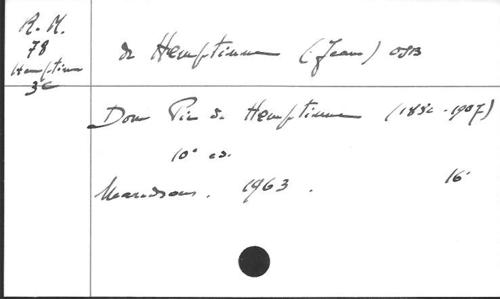 R. M.
78
Hemptinne
3c
de Hemptinne (Jean) OSB
Dom Pie de Hemptinne (1880-1907)
10° ed.
Maredsous. 1963.
16°